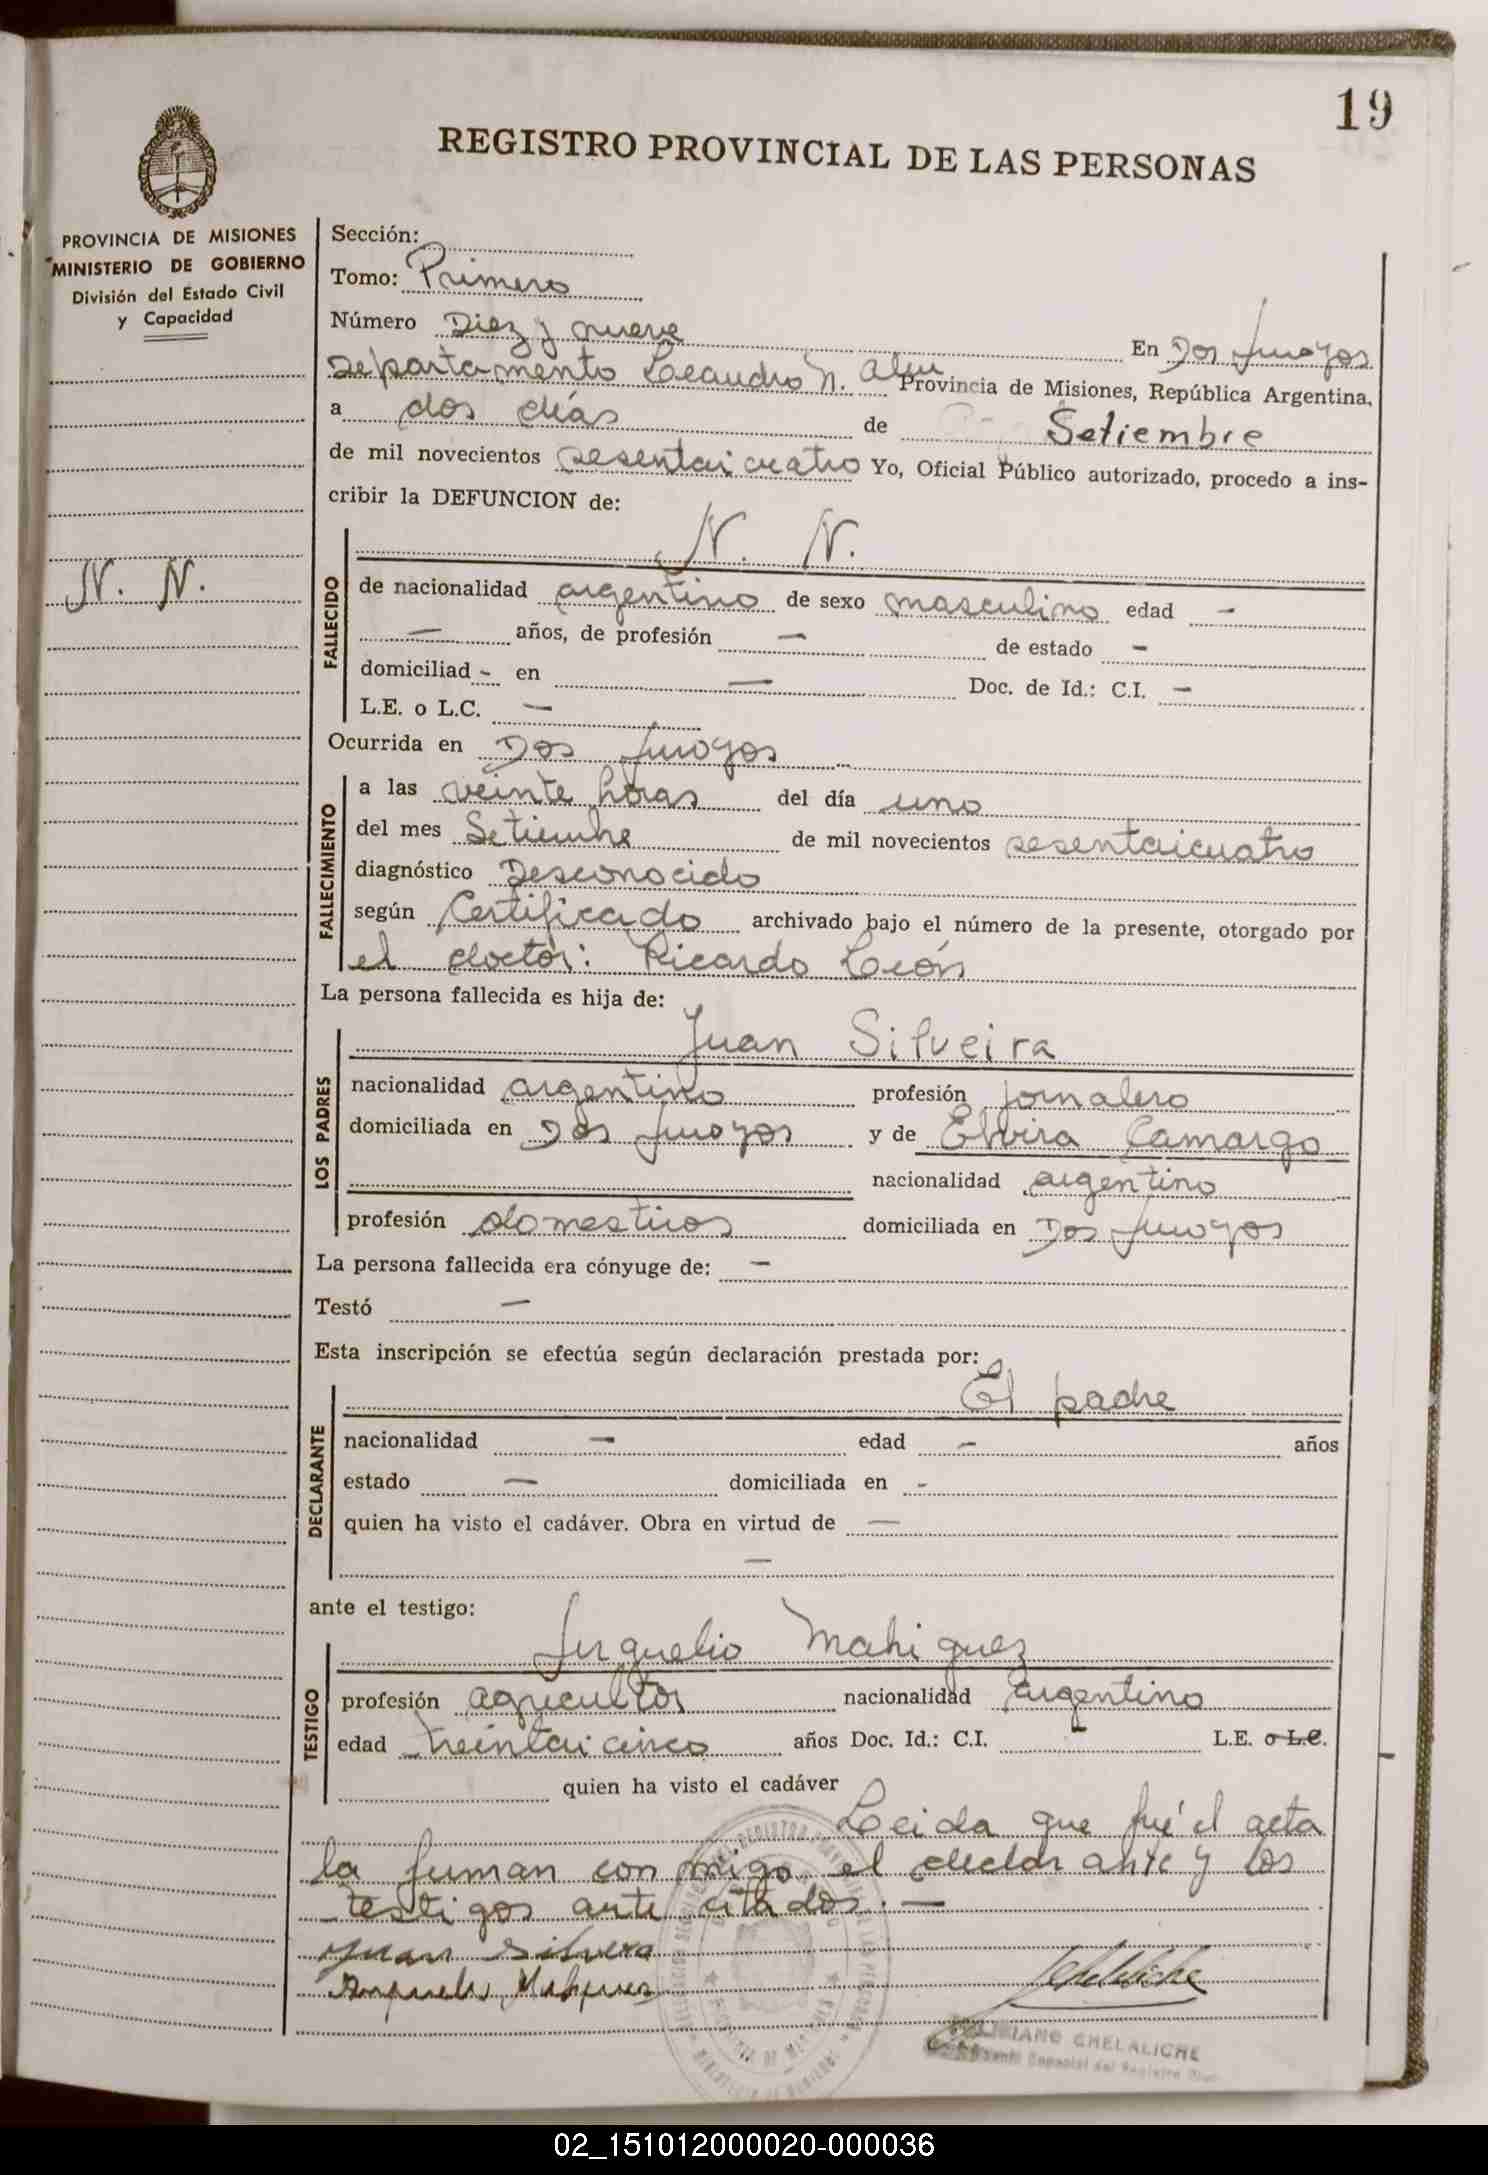 19
REGISTRO PROVINCIAL DE LAS PERSONAS
PROVINCIA DE MISIONES
MINISTERIO DE GOBIERNO
División del Estado Civil
y Capacidad
N. N.
Sección:
Tomo: Primero
Número Diez y nueve En Dos Arroyos
departamento Leandro N. Alem Provincia de Misiones, República Argentina,
a dos días de Setiembre
de mil novecientos sesentaicuatro Yo, Oficial Público autorizado, procedo a ins-
cribir la DEFUNCION de:
N. N.
FALLECIDO
de nacionalidad argentino de sexo masculino edad -
- años, de profesión - de estado -
domiciliad - en - Doc. de Id.: C.I. -
L.E. o L.C. -
Ocurrida en Dos Arroyos
FALLECIMIENTO
a las veinte horas del día uno
del mes Setiembre de mil novecientos sesentaicuatro
diagnóstico Desconocido
según Certificado archivado bajo el número de la presente, otorgado por
el doctor: Ricardo León
La persona fallecida es hija de:
Juan Silveira
LOS PADRES
nacionalidad argentino profesión jornalero
domiciliada en Dos Arroyos y de Elvira Camargo
nacionalidad argentino
profesión domesticos domiciliada en Dos Arroyos
La persona fallecida era cónyuge de: -
Testó -
Esta inscripción se efectúa según declaración prestada por:
El padre
DECLARANTE
nacionalidad - edad - años
estado - domiciliada en -
quien ha visto el cadáver. Obra en virtud de -
-
ante el testigo:
Mahiguez
TESTIGO
profesión agricultor nacionalidad argentino
edad treintaicinco años Doc. Id.: C.I. - L.E. o L.C.
quien ha visto el cadáver
Leida que fué el acta
la firman con migo el declarante y los
testigos ante citados. -
Juan Silvera
CHELALICHE
02_151012000020-000036